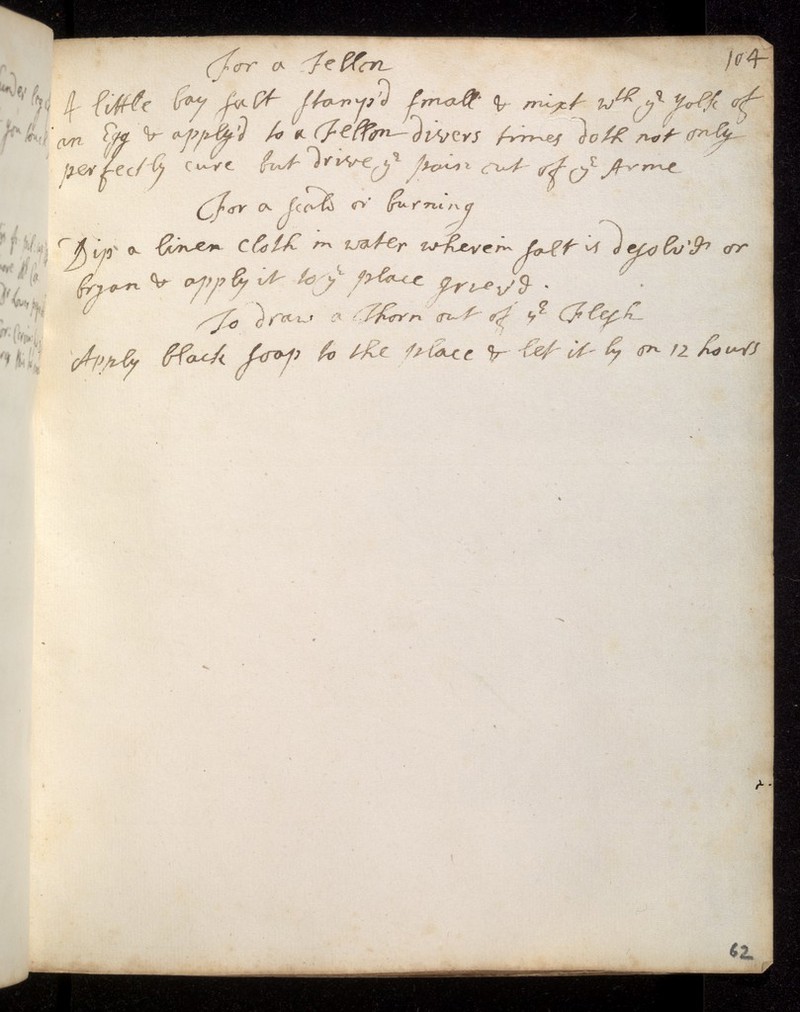 104
For a Fellon
A little bay salt stamp'd small & mixt wth ye yolk of
an Egg & apply'd to a Fellon divers times doth not only
perfectly cure but drive ye pain out of ye Arme
For a scald or burning
Dip a linen cloth in water wherein salt is desolv'd or
bryan & apply it to ye place griev'd.
To draw a Thorn out of ye Flesh
Apply black soap to the place & let it ly on 12 hours
62